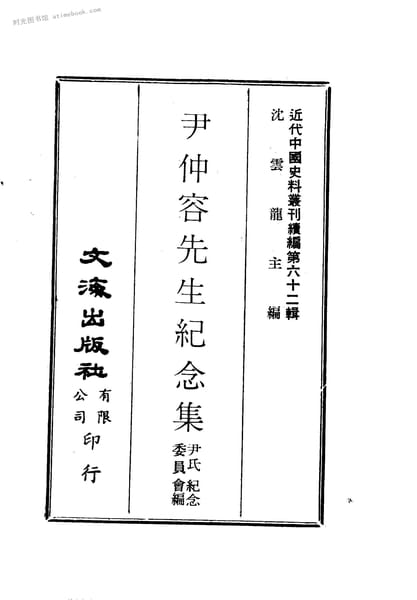 时光图书馆 atimebook.com
近代中國史料叢刊續編第六十二輯
沈雲龍主編
尹仲容先生紀念集
尹氏紀念
委員會編
文海出版社
有限
公司
印行